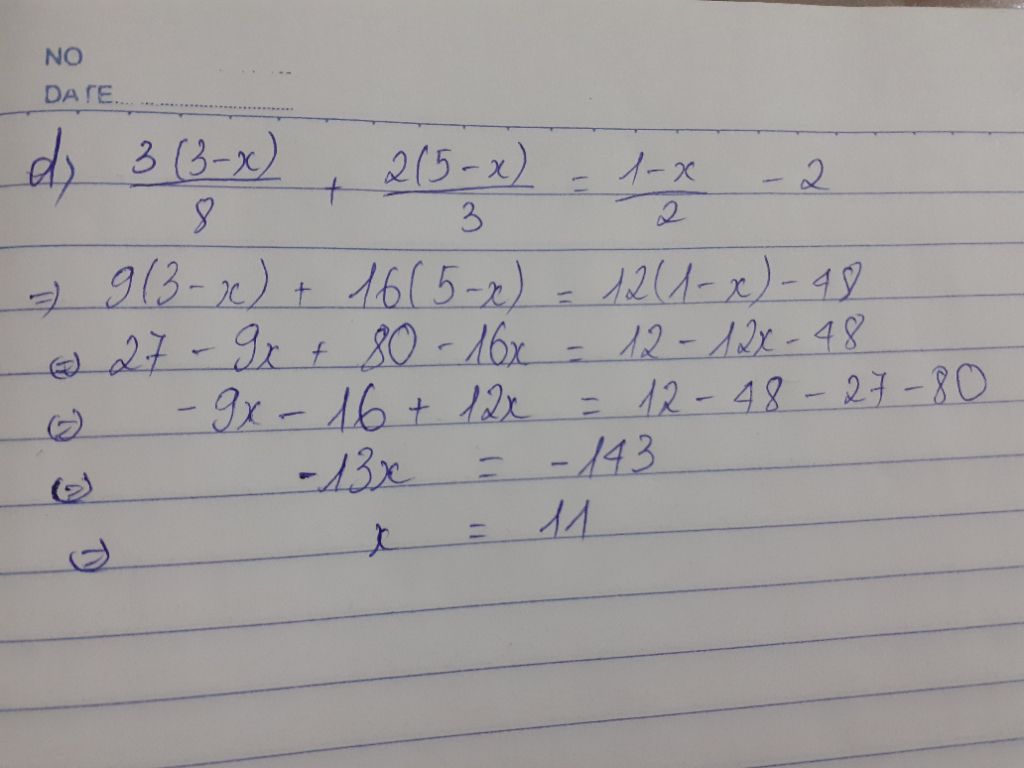 NO
DATE
d) 3(3-x)/8 + 2(5-x)/3 = 1-x/2 - 2
=> 9(3-x) + 16(5-x) = 12(1-x) - 48
(=) 27 - 9x + 80 - 16x = 12 - 12x - 48
(=) -9x - 16 + 12x = 12 - 48 - 27 - 80
(=) -13x = -143
(=) x = 11